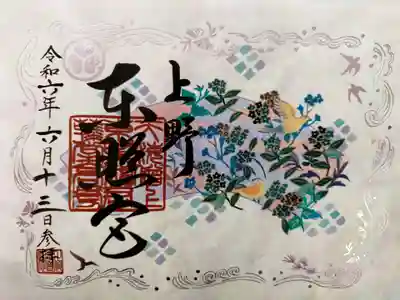 上野
东照宮
令和六年 六月十三日参